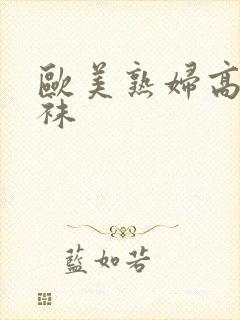 歐美熟婦高
袜
藍如若